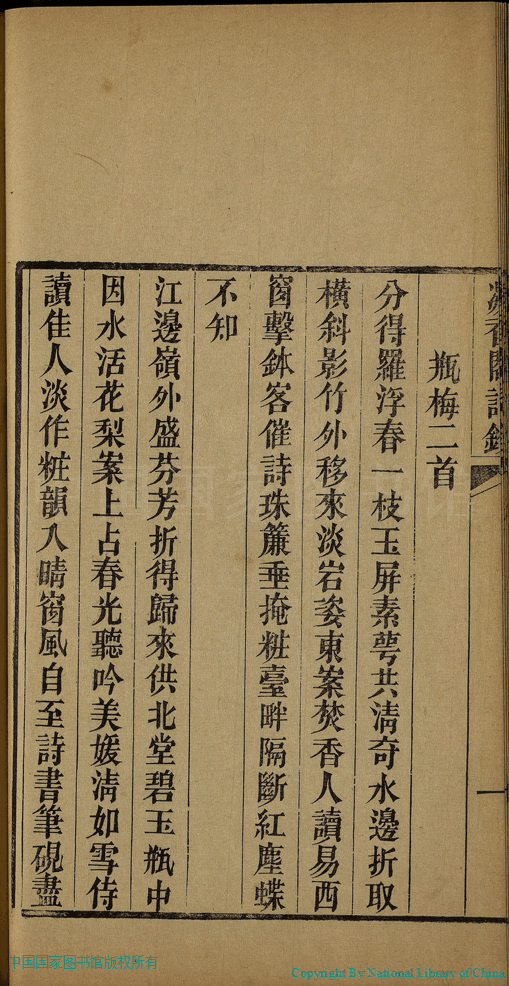 凝香閣詩鈔
一
瓶梅二首
分得羅浮春一枝玉屏素萼共清奇水邊折取
橫斜影竹外移來淡岩姿東案焚香人讀易西
窗擊鉢客催詩珠簾垂掩粧臺畔隔斷紅塵蝶
不知
江邊嶺外盛芬芳折得歸來供北堂碧玉瓶中
因水活花梨案上占春光聽吟美媛清如雪侍
讀佳人淡作粧韻入晴窗風自至詩書筆硯盡
中国国家图书馆版权所有
Copyright By National Library of China